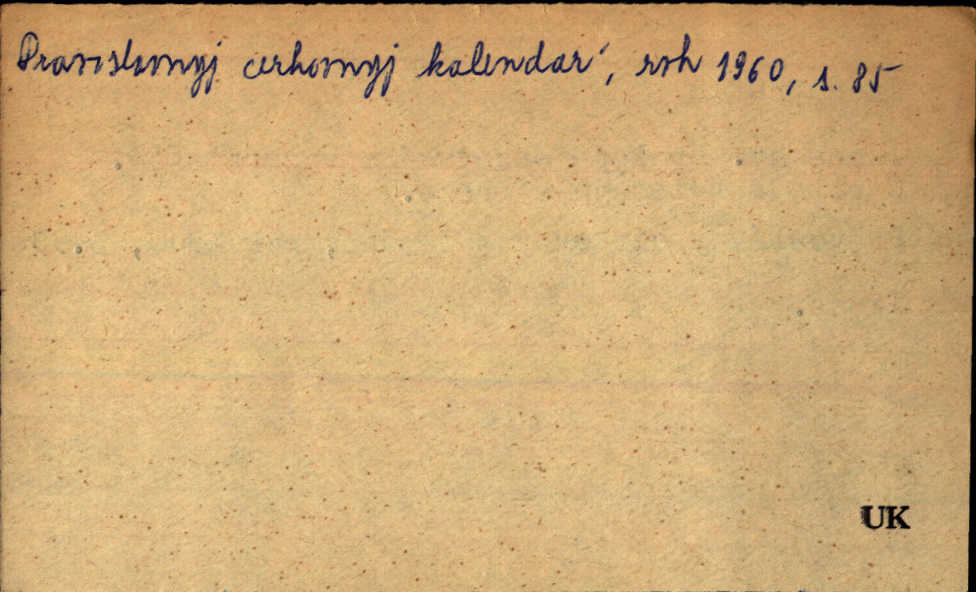 Pravoslavnyj cerkovnyj kalendar', rok 1960, s. 85
UK